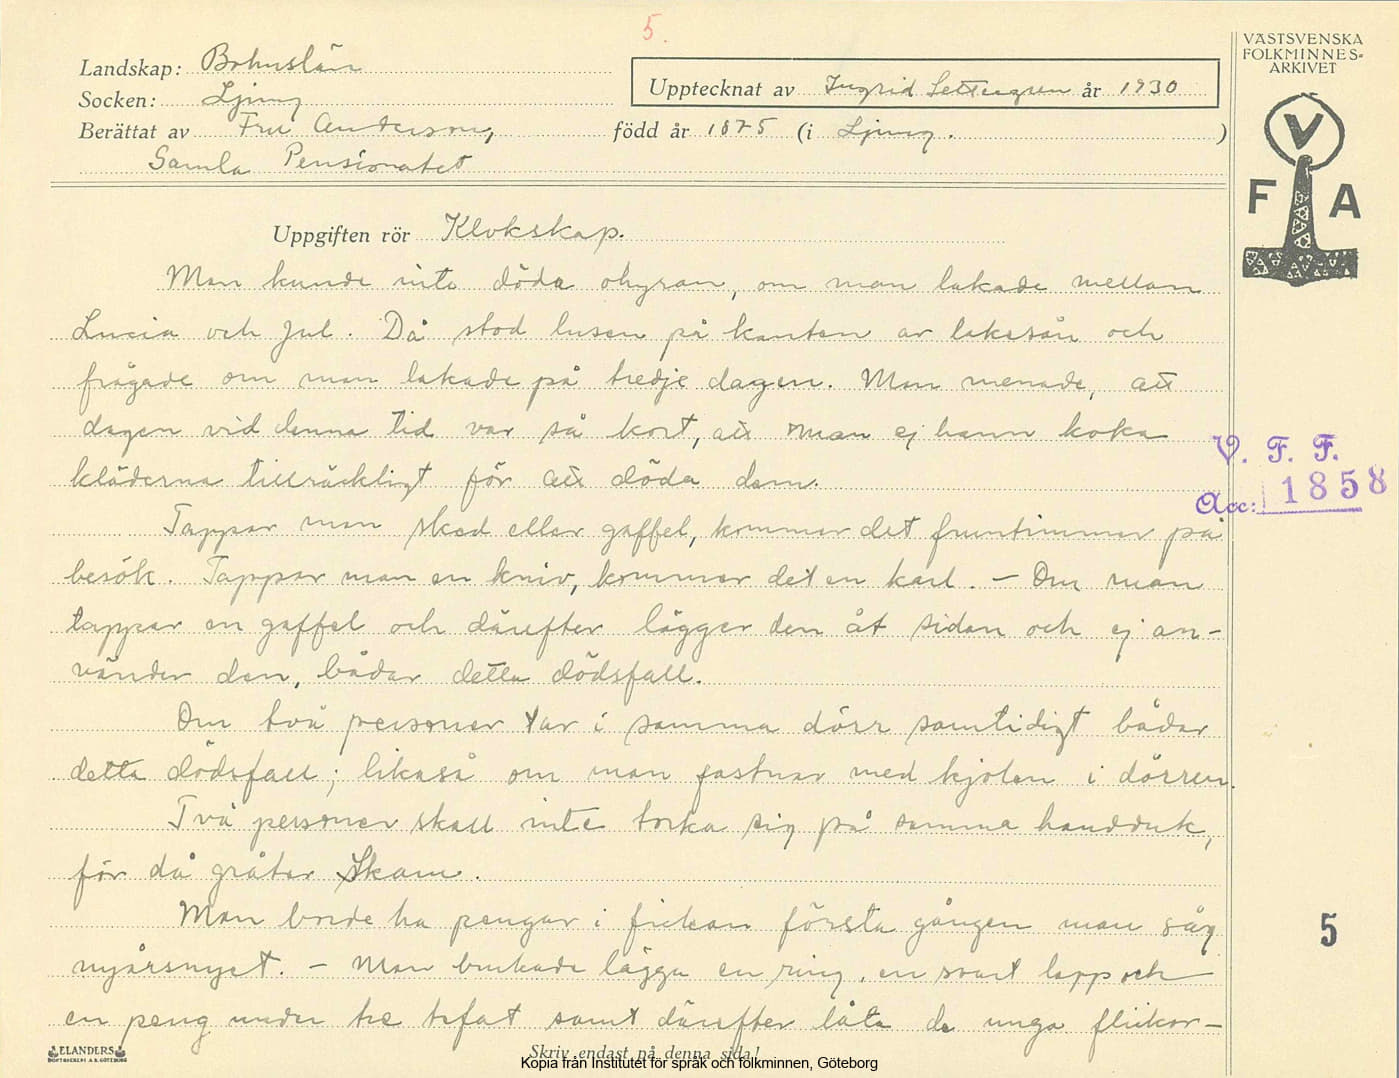 5.
Landskap: Bohuslän
Socken: Ljung
Berättat av Fru Anderson,
Samla Pensionatet
Upptecknat av Ingrid Settergren år 1930
född år 1875 (i Ljung. )
VÄSTSVENSKA
FOLKMINNES-
ARKIVET
V
F A
Uppgiften rör Klokskap.
Man kunde inte döda ohyran, om man lakade mellan
Lucia och Jul. Då stod lusen på kanten av lakesån och
frågade om man lakade på tredje dagen. Man menade, att
dagen vid denna tid var så kort, att man ej hann koka
kläderna tillräckligt för att döda dem.
Tappar man sked eller gaffel, kommer det fruntimmer på
besök. Tappar man en kniv, kommer det en karl. – Om man
tappar en gaffel och därefter lägger den åt sidan och ej an-
vänder den, bådar detta dödsfall.
Om två personer tar i samma dörr samtidigt bådar
detta dödsfall; likaså om man fastnar med kjolen i dörren.
Två personer skall inte torka sig på samma handduk,
för då gråter Skam.
Man borde ha pengar i fickan första gången man såg
nyårsnyet. – Man brukade lägga en ring, en svart lapp och
en peng under tre tefat samt därefter låta de unga flickor-
V. F. F.
Acc: 1858
5
ELANDERS
BOKTRYCKERI A.B. GÖTEBORG
Skriv endast på denna sida!
Kopia från Institutet för språk och folkminnen, Göteborg